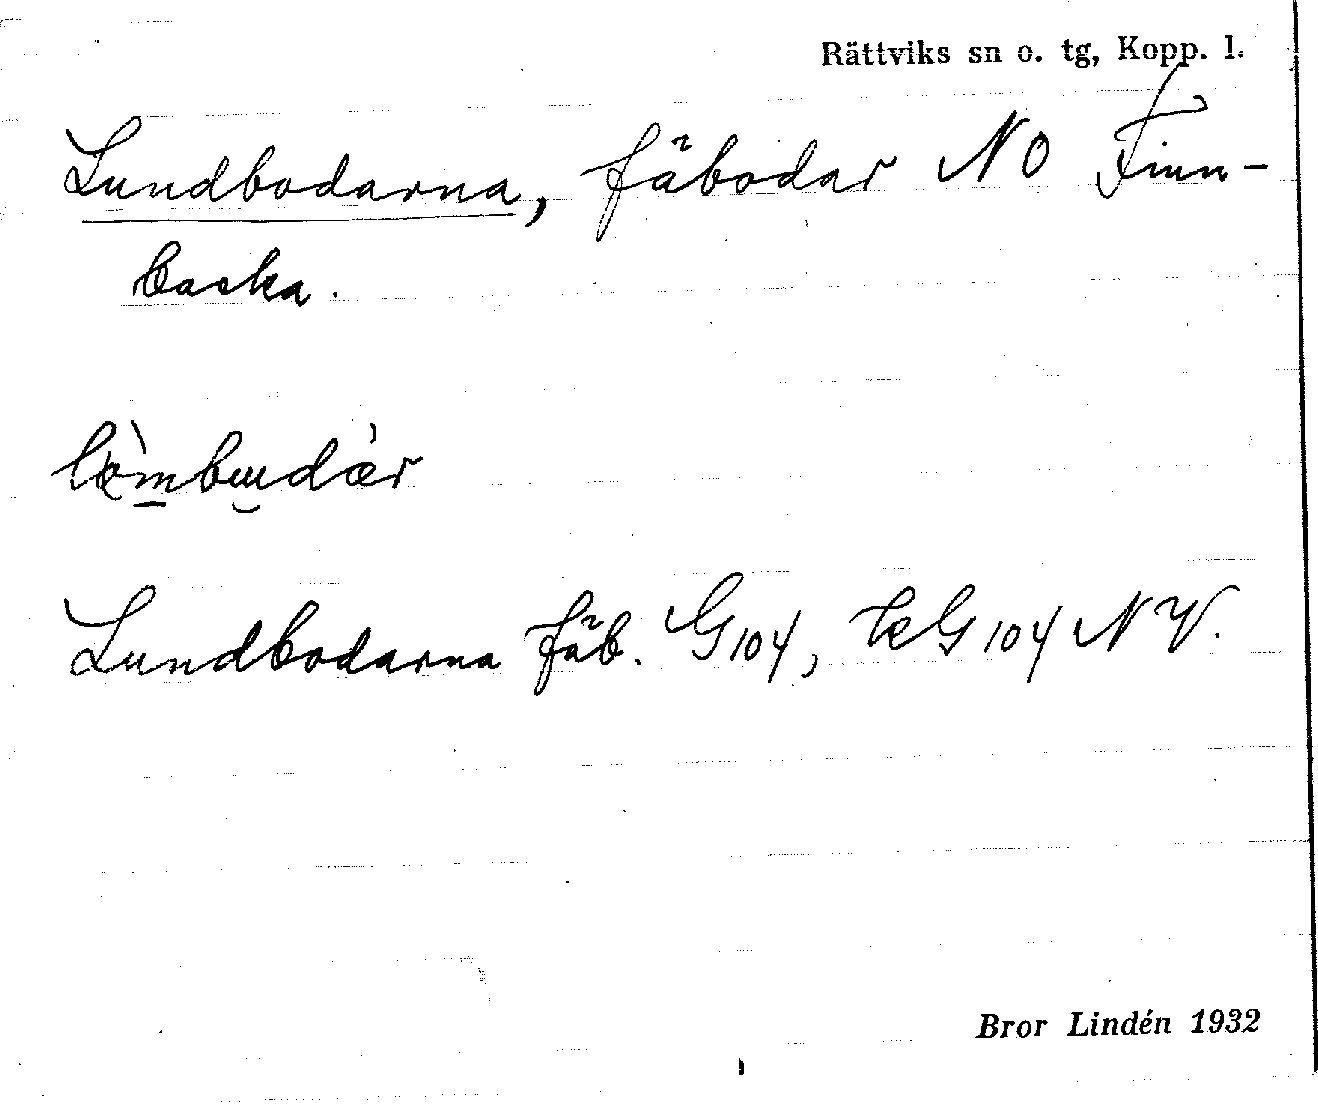 Rättviks sn o. tg, Kopp. l.
Lundbodarna, fäbodar NO Finn-
backa.
Lundbodarna fäb. G 104, EkG 104 NV.
Bror Lindén 1932